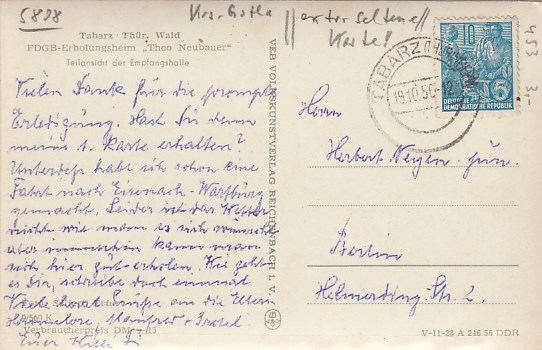 5808
Krs. Gotha
// extr. seltene //
Karte!
453
3,-
Tabarz / Thür. Wald
FDGB-Erholungsheim „Theo Neubauer"
Teilansicht der Empfangshalle
TABARZ (THÜR
19.10.56-12
10
DEUTSCHE
DEMOKRATISCHE REPUBLIK
5
Vielen Dank für die prompte
Erledigung. Hast Du denn
meine 1. Karte erhalten?
Unterdess habt ich schon eine
Fahrt nach Eisenach-Wartburg
gemacht. Leider ist das Wetter
nicht wie man es sich wünscht
aber immerhin kann man
sich hier gut erholen. Wie geht
es Dir, schreibe doch einmal
Viele herzl. Grüsse an die Eltern
Hannelore, Manfred + Gretel
Euer Willi
9/560 K
Verbraucherpreis DM -,15
VEB VOLKSKUNSTVERLAG REICHENBACH I. V.
Herrn
Herbert jun.
Berlin
Helmerding-Str. 2.
V-11-28 A 246 56 DDR